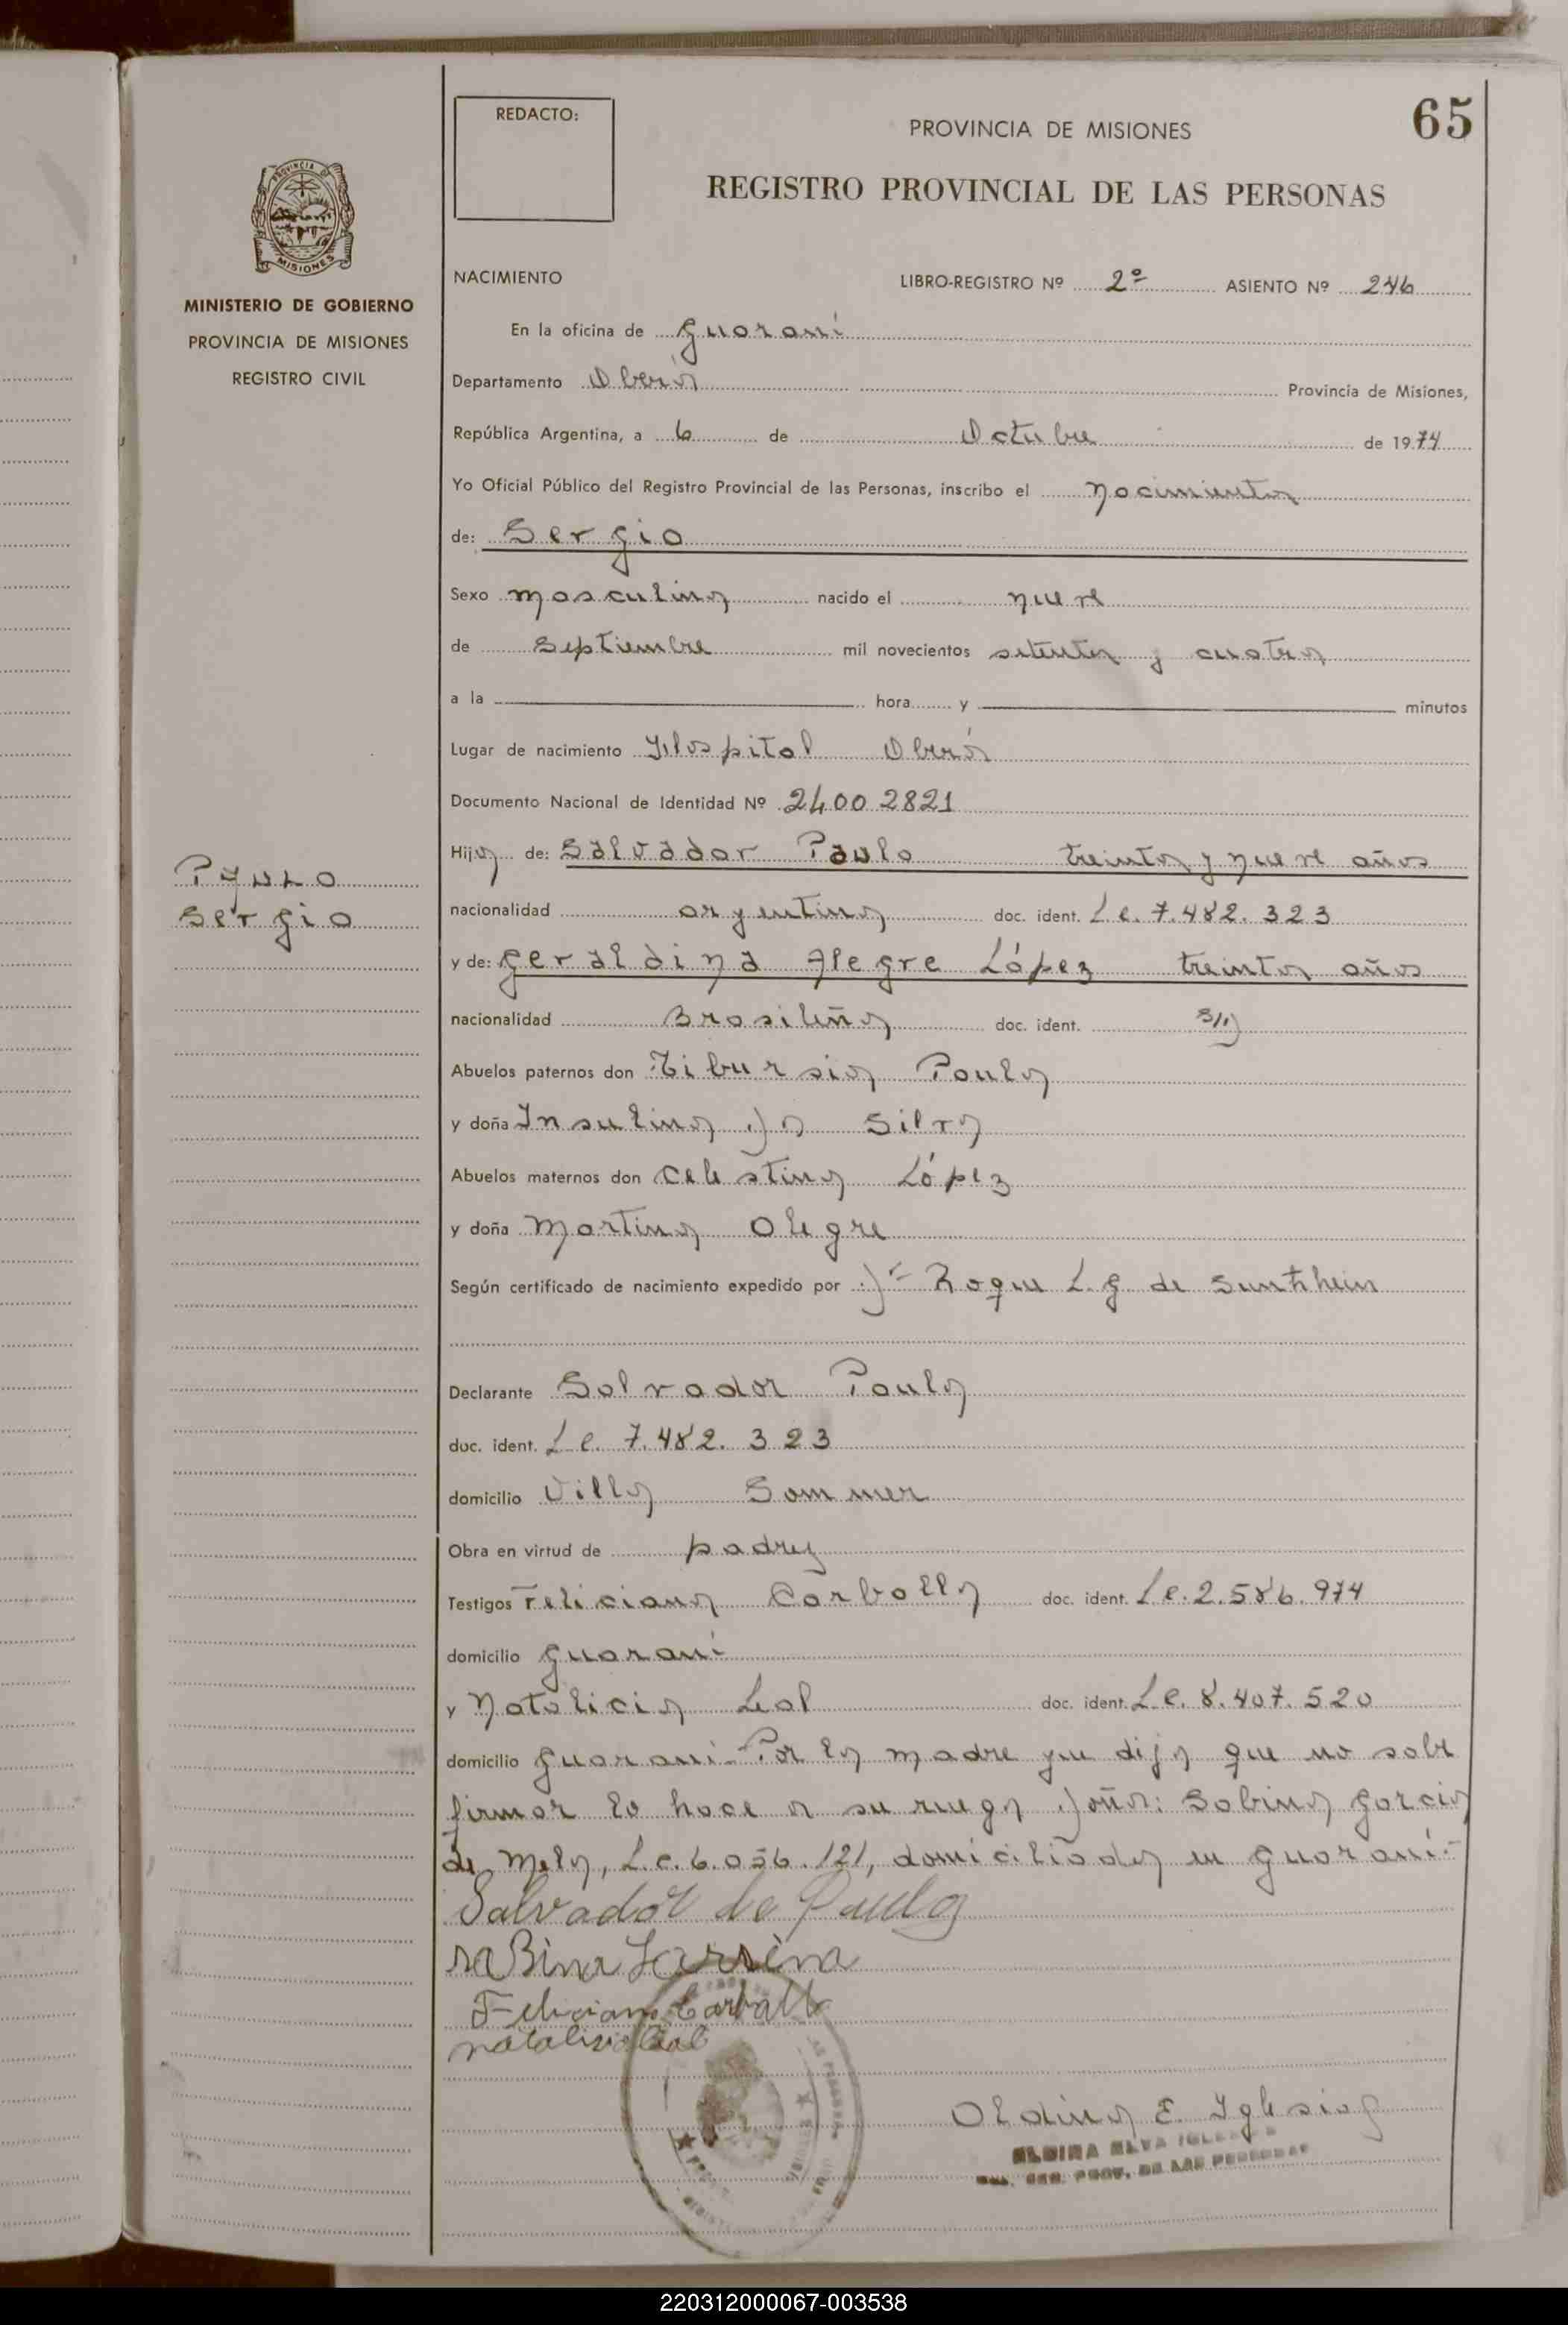 65
REDACTO:
PROVINCIA DE MISIONES
REGISTRO PROVINCIAL DE LAS PERSONAS
PROVINCIA DE
MISIONES
MINISTERIO DE GOBIERNO
PROVINCIA DE MISIONES
REGISTRO CIVIL
NACIMIENTO LIBRO-REGISTRO Nº 2º ASIENTO Nº 246
En la oficina de Guaraní
Departamento Oberá Provincia de Misiones,
República Argentina, a 6 de Octubre de 1974
Yo Oficial Público del Registro Provincial de las Personas, inscribo el nacimiento
de: Sergio
Sexo masculino nacido el nueve
de Septiembre mil novecientos setenta y cuatro
a la hora y minutos
Lugar de nacimiento Hospital Oberá
Documento Nacional de Identidad Nº 24002821
Paulo
Sergio
Hijo de: Salvador Paulo treinta y nueve años
nacionalidad argentina doc. ident. L.e. 7.482.323
y de: Geraldina Alegre López treinta años
nacionalidad Brasileña doc. ident.
Abuelos paternos don Tibursio Paulo
y doña Insulina da Silva
Abuelos maternos don Celestino López
y doña Martina Alegre
Según certificado de nacimiento expedido por Dr Roque L. G. de
Declarante Salvador Paulo
doc. ident. L.e. 7.482.323
domicilio Villa Sommer
Obra en virtud de padre
Testigos Feliciano Carballo doc. ident. L.e. 2.586.974
domicilio Guaraní
y Natalicio Leal doc. ident. L.e. 8.407.520
domicilio Guaraní - Por la madre que dijo que no sabe
firmar lo hace a su ruego doña: Sabina Garcia
de Melo, L.c. 6.056.121, domiciliada en Guaraní.-
Salvador de Paulo
saBina
Feliciano Carballo
natalisio Leal
Aldina E. Iglesias
PROV. DE LAS PERSONAS
220312000067-003538